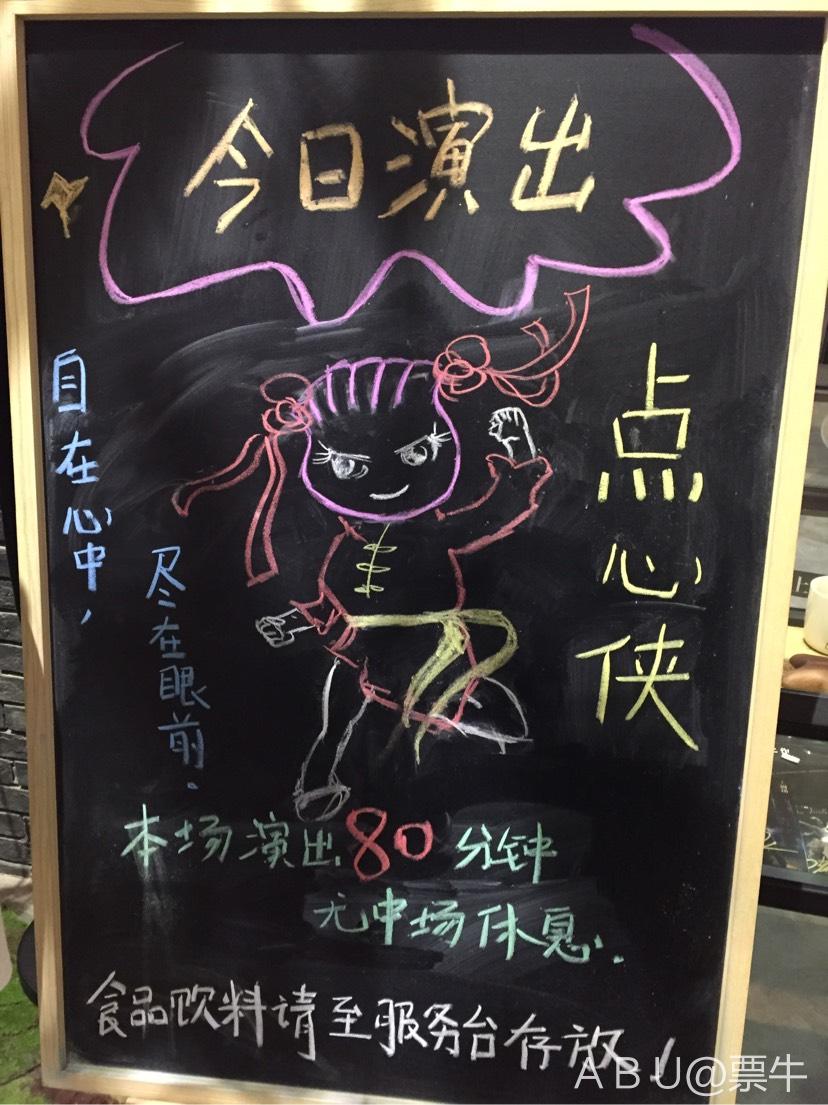 今日演出
点心侠
自在心中，
尽在眼前。
本场演出80分钟
无中场休息.
食品饮料请至服务台存放!
上
ABU@票牛